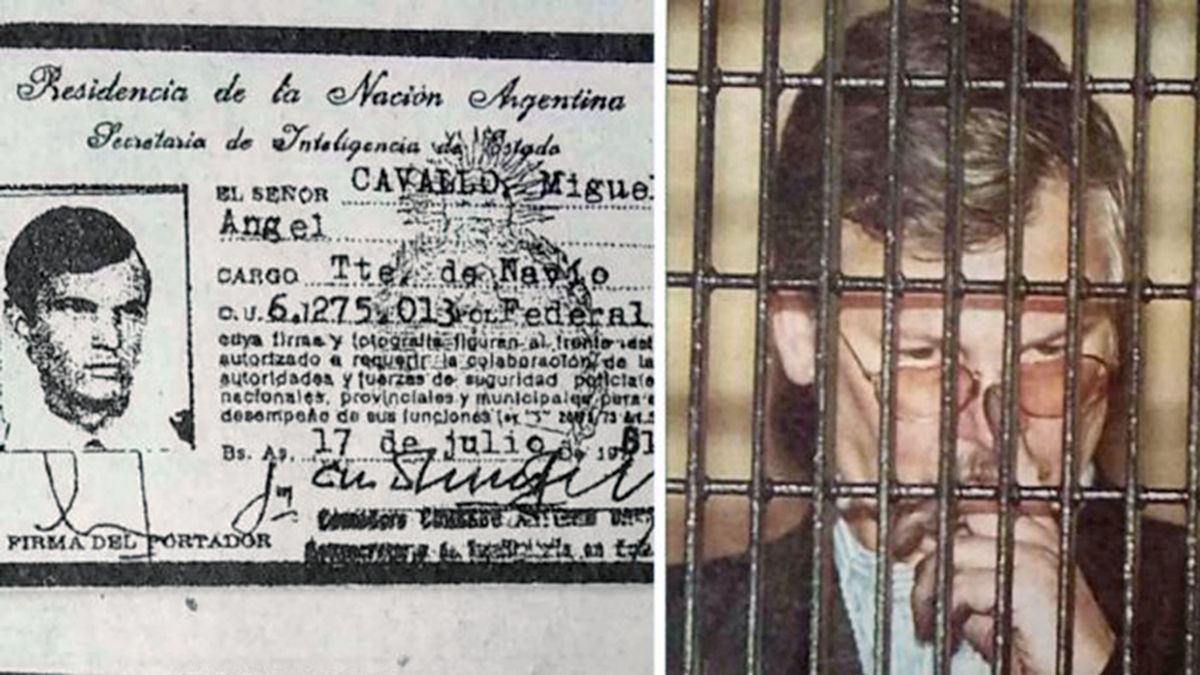 Presidencia de la Nación Argentina
Secretaria de Inteligencia de Estado
EL SEÑOR CAVALLO, Miguel
Angel
CARGO Tte. de Navío
C.U. 6.1275.013 POL. Federal
cuya firma y fotografia figuran al frente est
autorizado a requerir la colaboración de la
autoridades y fuerzas de seguridad policiale
nacionales, provinciales y municipales para e
desempeño de sus funciones
Bs. As. 17 de julio de 1981
FIRMA DEL PORTADOR